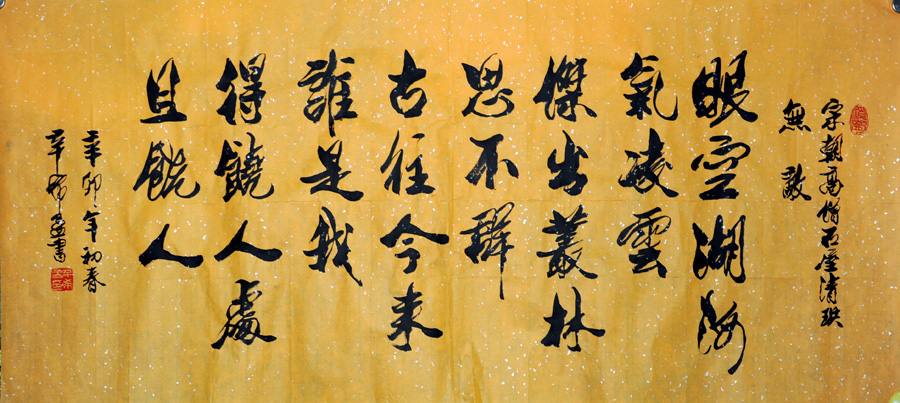 宋朝高僧石屋清珙
無敵
眼空湖海
氣凌雲
傑出叢林
思不群
古往今来
誰是我
得饒人處
且饒人
辛卯年初春
辛書